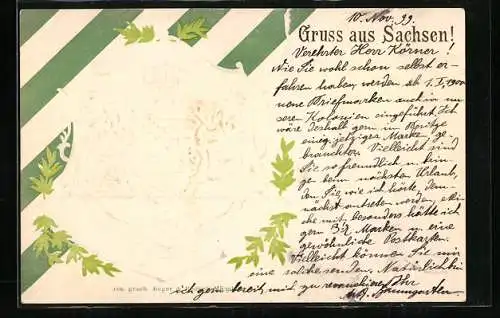 10. Nov. 99.
Gruss aus Sachsen!
Verehrter Herr Körner!
Wie Sie wohl schon selbst er-
fahren haben, werden ab 1.I.1900
neue Briefmarken auch in un
seren Kolonien eingeführt. Ich
wäre deshalb gern im Besitze
einig. jetziger Marken, ge-
brauchter. Vielleicht sind
Sie so freundlich u. brin-
gen beim nächsten Urlaub,
den Sie, wie ich hörte, dem-
nächst antreten werden, e
che mit, besonders hätte ich
gern Marken u. eine
gewöhnliche Postkarte.
Vielleicht können Sie mir
eine solche senden. Natürlich bin
ich gern bereit, mit zu revanchieren. Ihr
Baumgarten